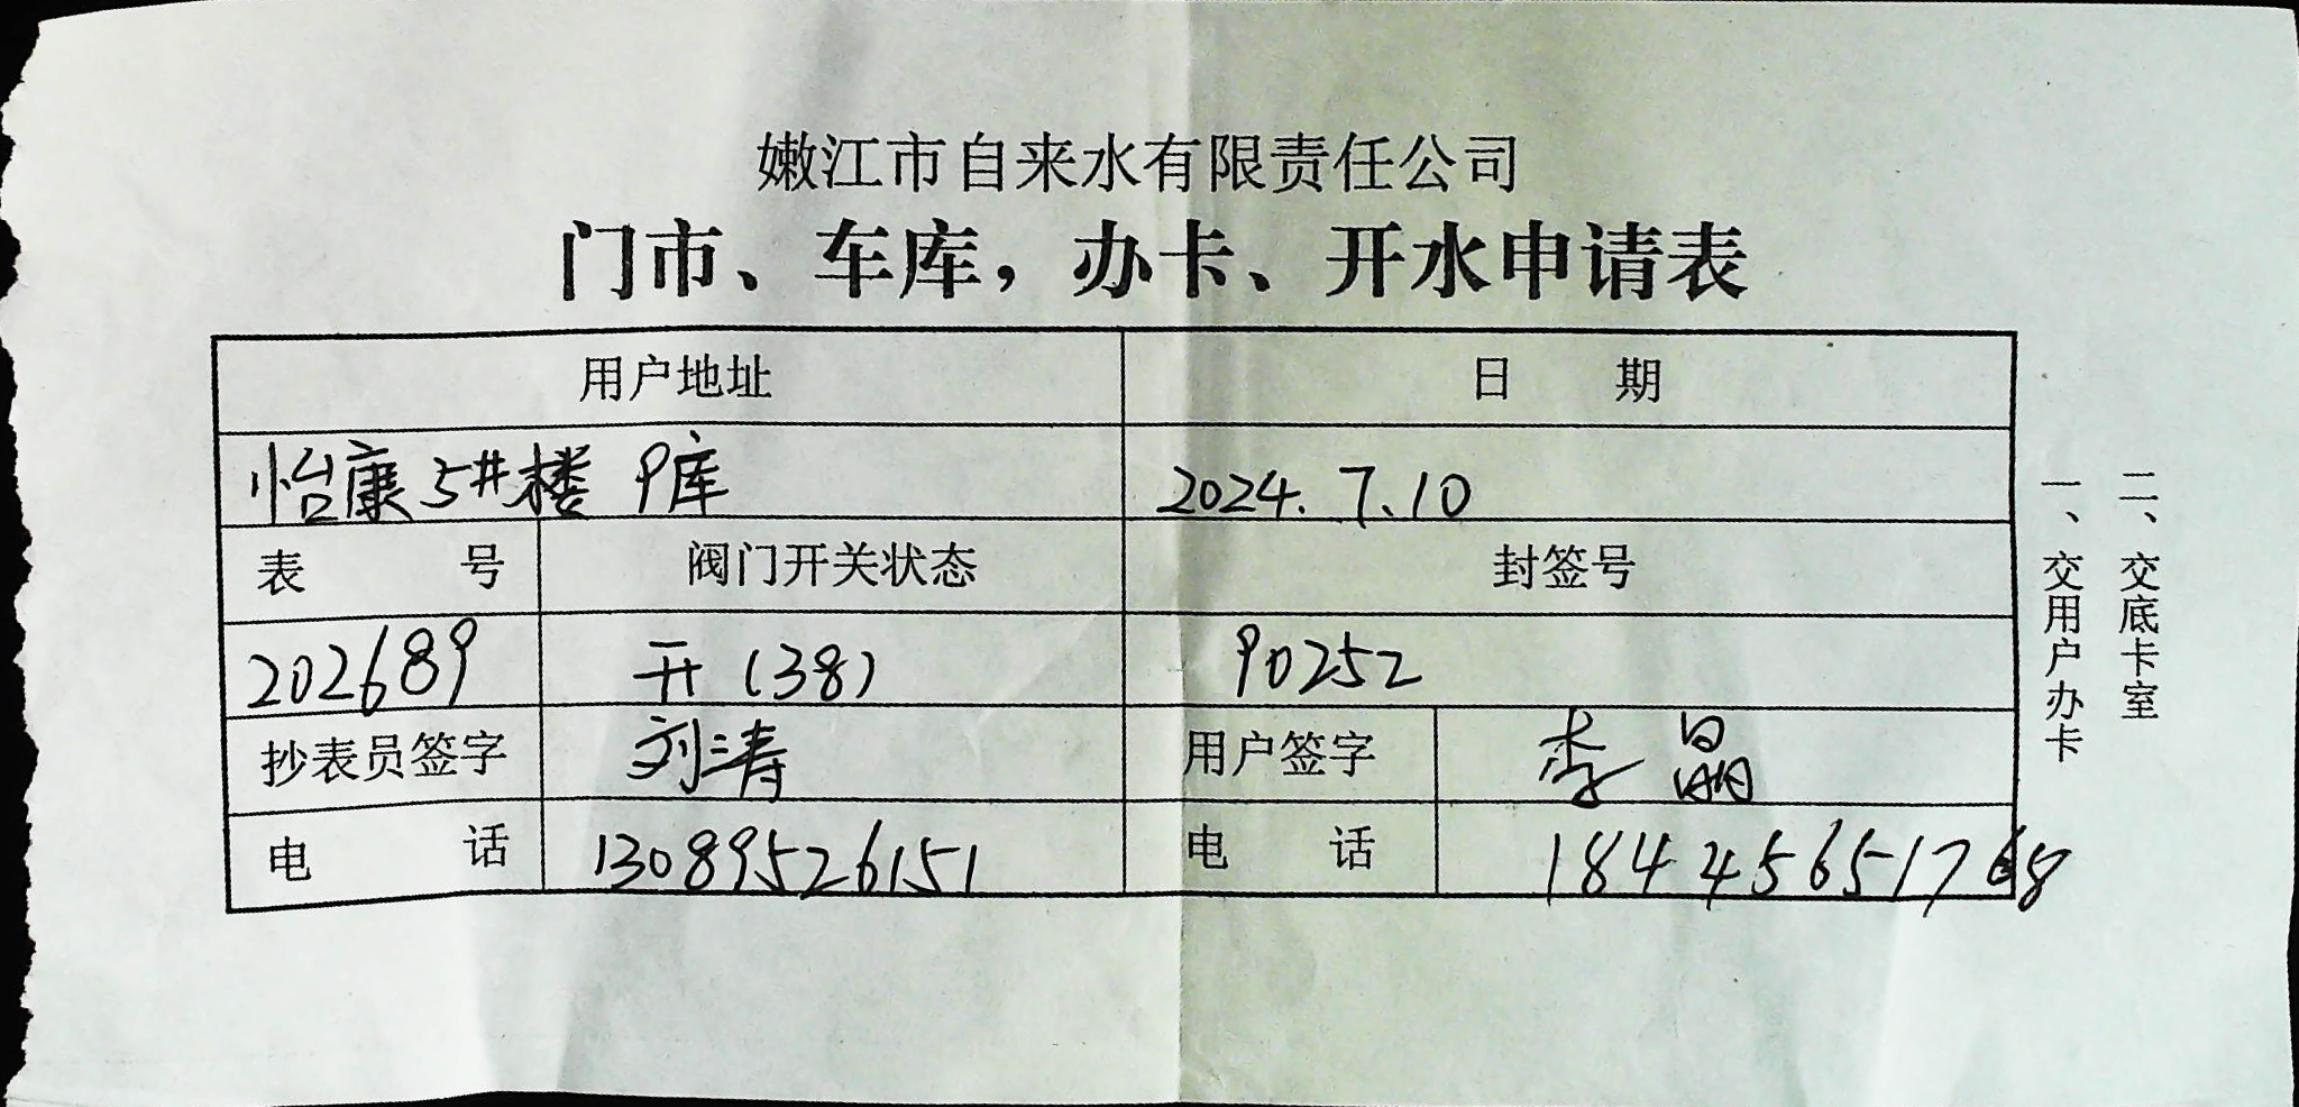 嫩江市自来水有限责任公司
门市、车库，办卡、开水申请表
用户地址 日 期
怡康5#楼 9库 2024.7.10
表 号 阀门开关状态 封签号
202689 开(38) 90252
抄表员签字 刘涛 用户签字 李晶
电 话 13089526151 电 话 18445651768
一、交用户办卡
二、交底卡室